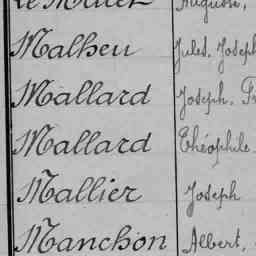 Malheu Jules, Joseph
Mallard Joseph,
Mallard Théophile
Mallier Joseph
Manchon Albert,